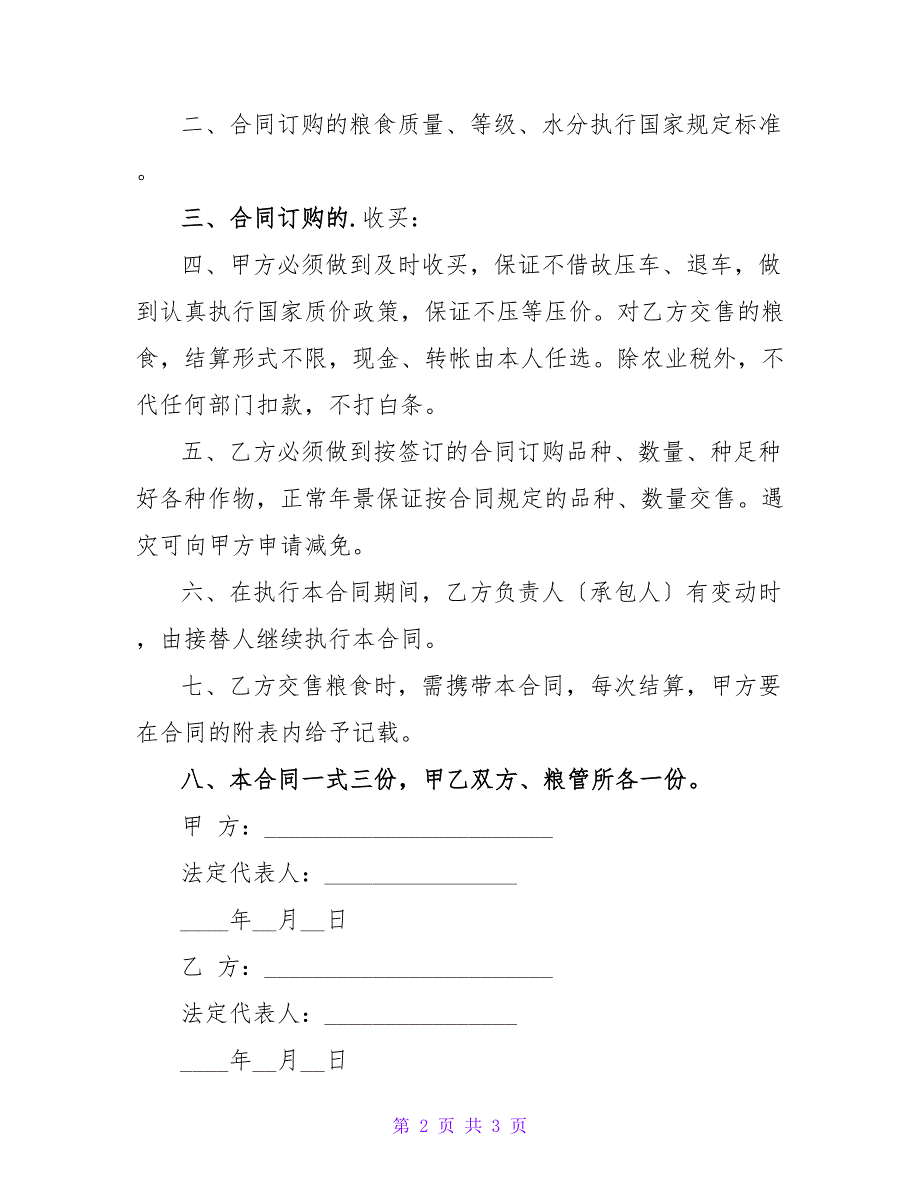 二、合同订购的粮食质量、等级、水分执行国家规定标准
。
三、合同订购的.收买：
四、甲方必须做到及时收买，保证不借故压车、退车，做
到认真执行国家质价政策，保证不压等压价。对乙方交售的粮
食，结算形式不限，现金、转帐由本人任选。除农业税外，不
代任何部门扣款，不打白条。
五、乙方必须做到按签订的合同订购品种、数量、种足种
好各种作物，正常年景保证按合同规定的品种、数量交售。遇
灾可向甲方申请减免。
六、在执行本合同期间，乙方负责人〔承包人〕有变动时
，由接替人继续执行本合同。
七、乙方交售粮食时，需携带本合同，每次结算，甲方要
在合同的附表内给予记载。
八、本合同一式三份，甲乙双方、粮管所各一份。
甲 方：________________________
法定代表人：________________
____年__月__日
乙 方：________________________
法定代表人：________________
____年__月__日
第 2 页 共 3 页